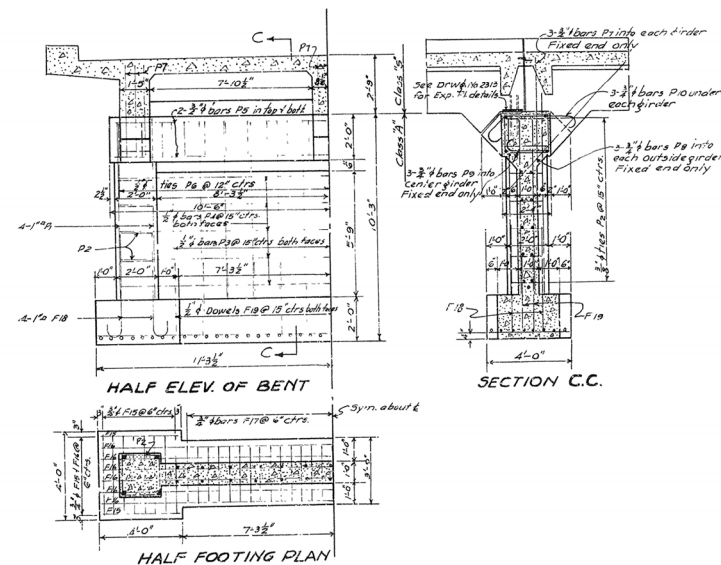 C
P7
P7
1'-9"
7'-10½"
2-¾"ϕ bars P5 in top & bott
2'-9"
Class "S"
2'-0"
Class "A"
10'-3"
5'-9"
2'-0"
ties P6 @ 12" ctrs
2½"
2'-0"
8'-3½"
10'-6"
½"ϕ bars P4 @ 15" ctrs.
both faces
4-1"ϕ P1
P2
½"ϕ bars P3 @ 15" ctrs both faces
1'-0"
2'-0"
1'-0"
7'-3½"
4-1"ϕ F18
½"ϕ Dowels F19 @ 15" ctrs both faces
C
11'-3½"
HALF ELEV. OF BENT
3-¾"ϕ bars P7 into each girder
Fixed end only
See Drwg. No 2313
for Exp. details
3-¾"ϕ bars P10 under
each girder
3-¾"ϕ bars P8 into
each outside girder
Fixed end only
3-¾"ϕ bars P9 into
center girder
Fixed end only
ties P2 @ 15" ctrs.
1'-0"
6"
1'-0"
6"
1'-0"
1'-0"
2'-0"
1'-0"
6"
1'-0"
1'-0"
1'-0"
6"
F18
F19
4'-0"
SECTION C.C.
3"
¾"ϕ F15 @ 6" ctrs.
3"
¾"ϕ bars F17 @ 6" ctrs.
Sym. about ℄
3"
4'-0"
¾"ϕ F15 & F16 @
6" ctrs.
3"
F15
F16
F16
F16
F16
F16
F16
F15
P2
1'-0"
1'-0"
1'-0"
3'-0"
4'-0"
7'-3½"
HALF FOOTING PLAN